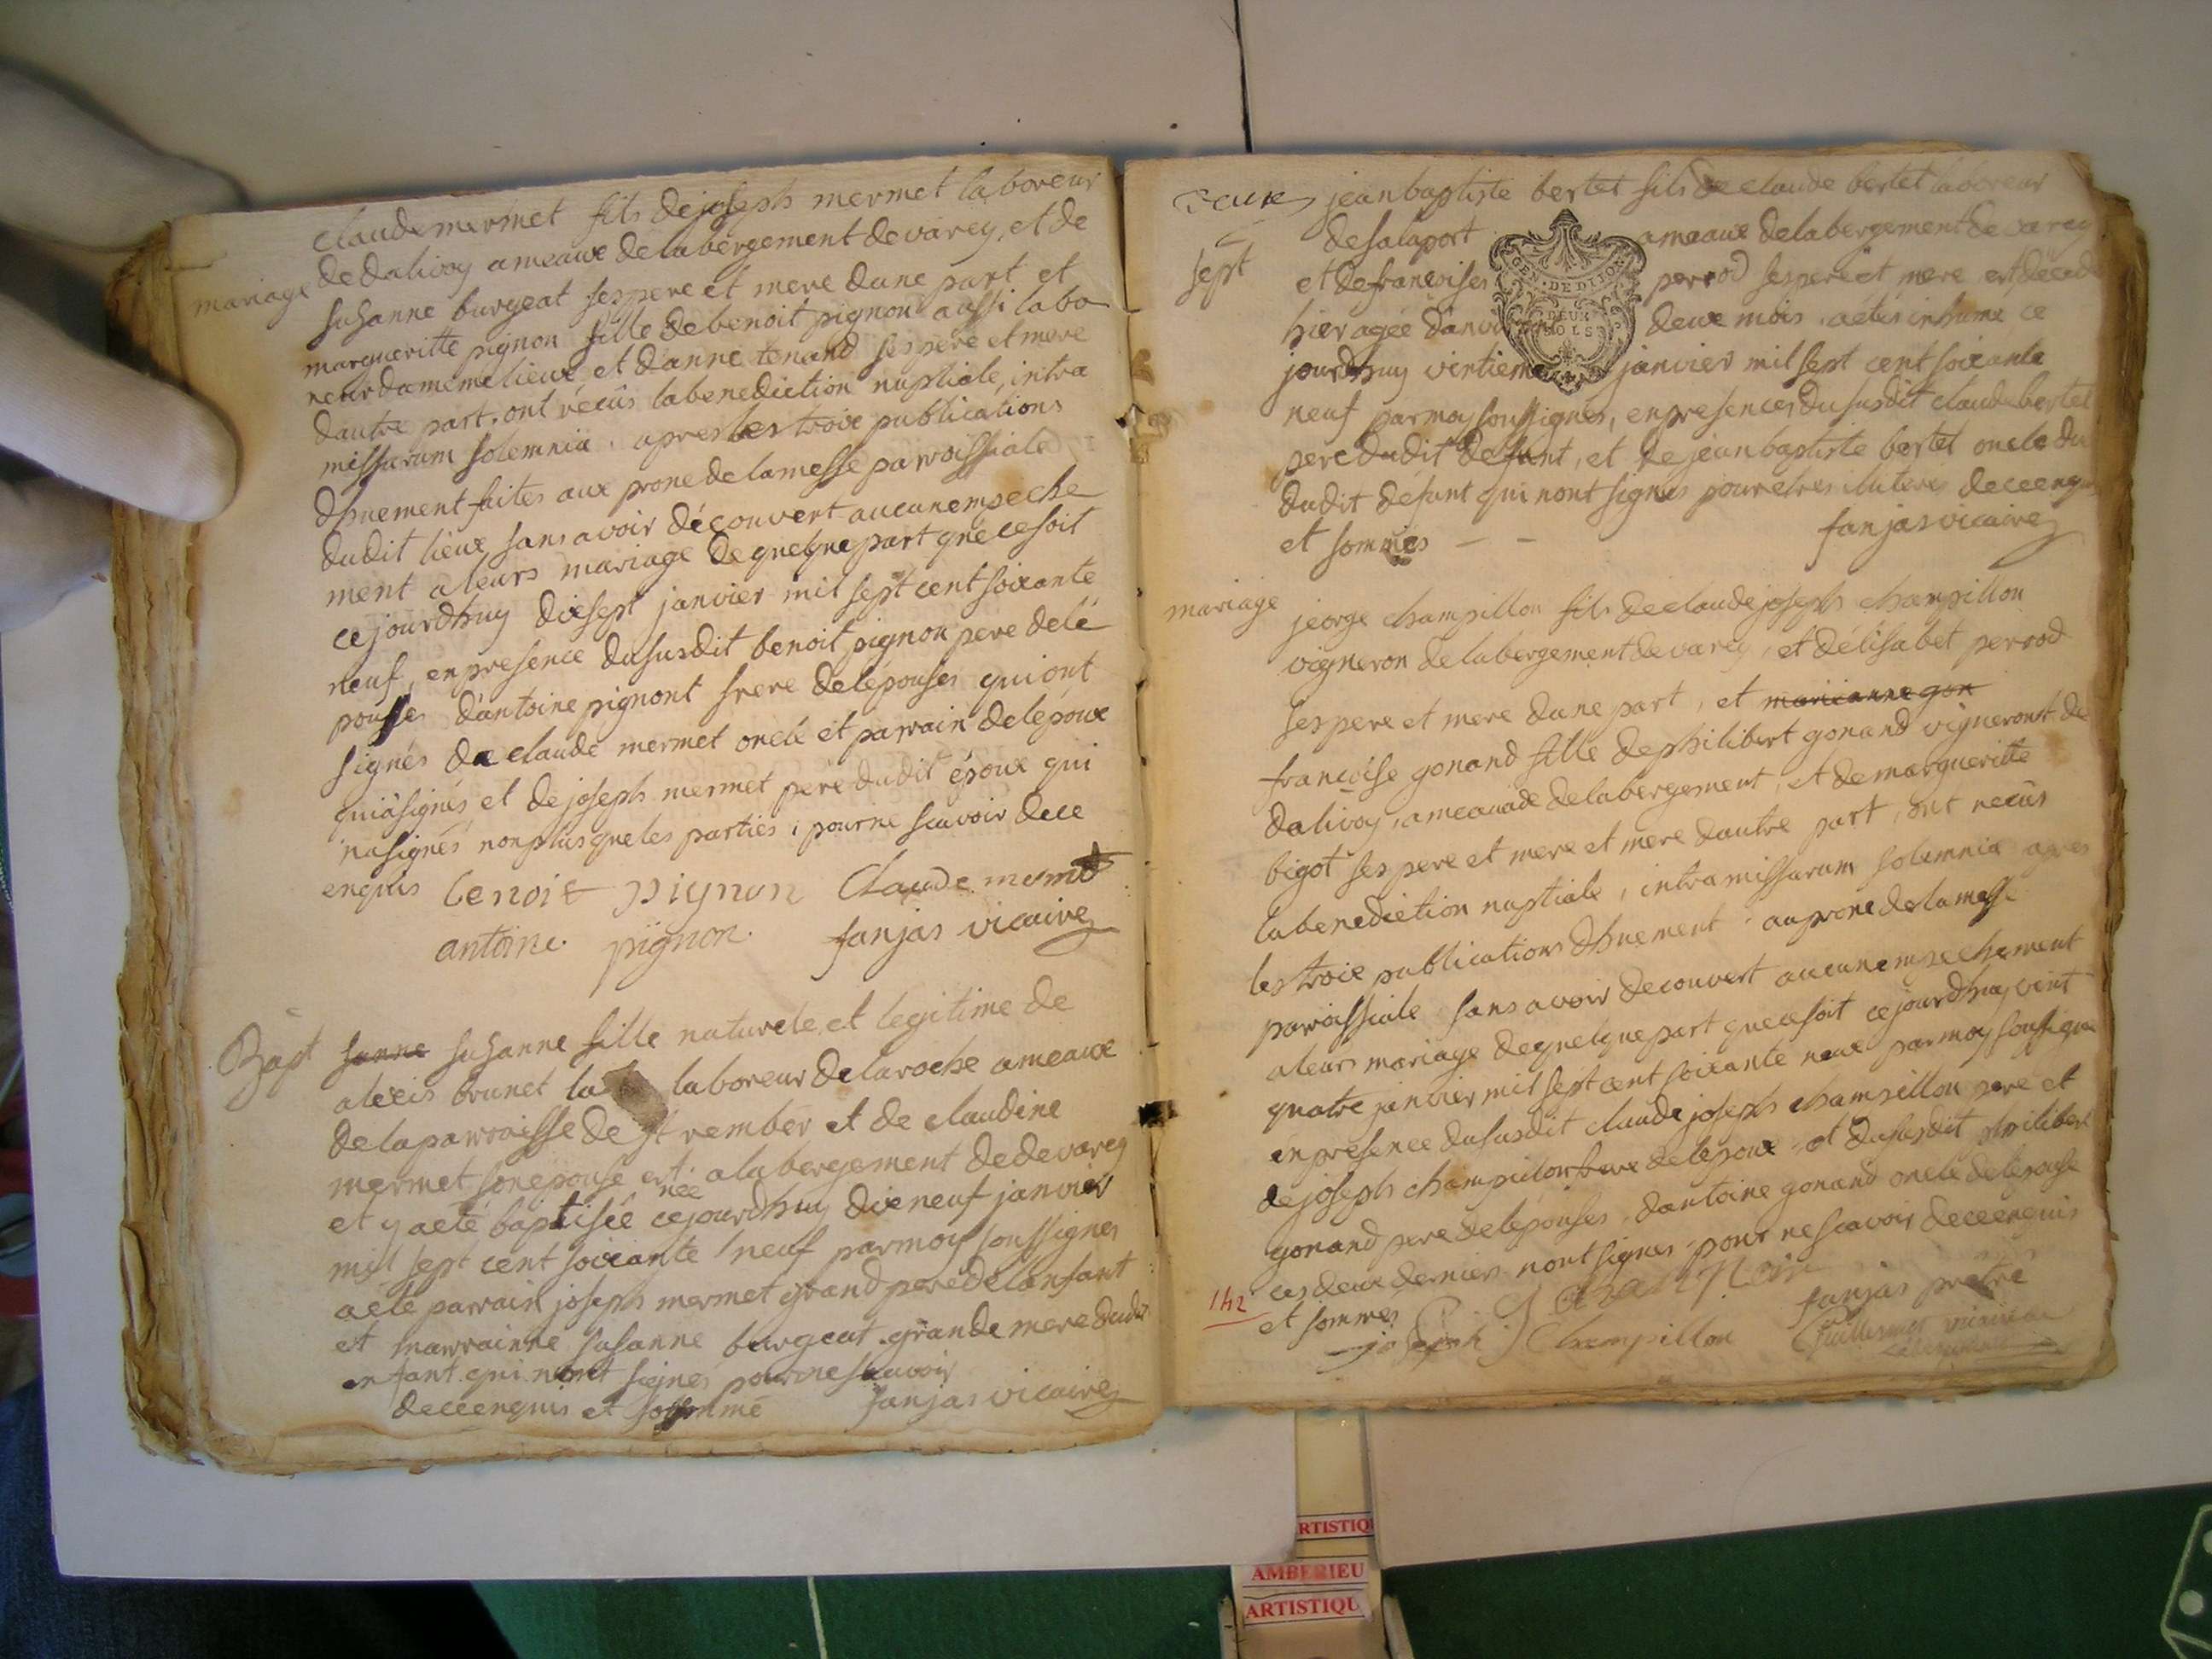 mariage
claude mermet fils de joseph mermet laboreur
de dalivoy ameaux de labergement de varey, et de
susanne burgeat ses pere et mere dune part et
margueritte pignon fille de benoit pignon aussi labo
reur du meme lieux et danne tenand ses pere et mere
dautre part. ont recûs la benediction nuptiale, intra
missarum solemnia. apres les troix publications
dhuement faites aux prone de la messe parroissiale
dudit lieux sans avoir découvert aucun empeche
ment a leurs mariage de quelque part que ce soit
ce jourdhuy diesept janvier mil sept cent soixante
neuf, en presence du susdit benoit pignon pere de lé
pouse dantoine pignont frere de lépouses qui ont
signés de claude mermet oncle et parrain de lépoux
qui a signés, et de joseph mermet pere dudit époux qui
na signés non plus que les parties, pour ne scavoir de ce
enquis
benoit pignon claude mermet
antoine pignon fanjas vicaire
Bapt
sanne susanne fille naturele et legitime de
alexis brunet la laboreur de laroche ameaux
de la parroisse de st rember et de claudine
mermet son epouse est née a labergement de de varey
et y a eté baptisée ce jourdhuy dixneuf janvier
mil sept cent soixante neuf par moy soussignes
a eté parrain joseph mermet grand pere de lenfant
et marrainne susanne burgeat grande mere dudit
enfant qui nont signés pour ne scavoir
de ce enquis et sommé fanjas vicaire
jean baptiste bertet fils de claude bertet laboreur
sept
de salaport ameaux de labergement de varey
et de francoises perrod ses pere et mere est décedé
hier agée denviron deux mois. a étés inhumé ce
jourdhuy vintieme janvier mil sept cent soixante
neuf par moy soussignés, en presences du susdit claude bertet
pere dudit defunt, et de jean baptiste bertet oncle du
dudit défunt qui nont signés pour etres iliterés de ce enquis
et sommés - - fanjas vicaire
GEN. DE DIJON
DEUX
SOLS
mariage
jeorge champillon fils de claude joseph champillon
vigneron de labergement de varey, et délisabet perrod
ses pere et mere dune part, et marieanne gon
francoise gonand fille de philibert gonand vigneront de
dalivoy, ameauade de labergement, et de margueritte
bigot ses pere et mere et mere dautre part, ont recûs
la benediction nuptiale, intra missarum solemnia apres
les troix publications dhuement au prone de la messe
parroissiale sans avoir decouvert aucun empechement
a leurs mariage de quelque part que ce soit ce jourdhuy vint
quatre janvier mil sept cent soixante neuf par moy soussigné
en presence du susdit claude joseph champillon pere et
de joseph champillon frere de lépoux et du susdit philibert
gonand pere de lépouses, dantoine gonand oncle de lépouse
ces deux dernier nont signés pour ne scavoir de ce enquis
et sommes
142
fanjas pretre
joseph Champillon
RTISTIQ
AMBERIEU
ARTISTIQU